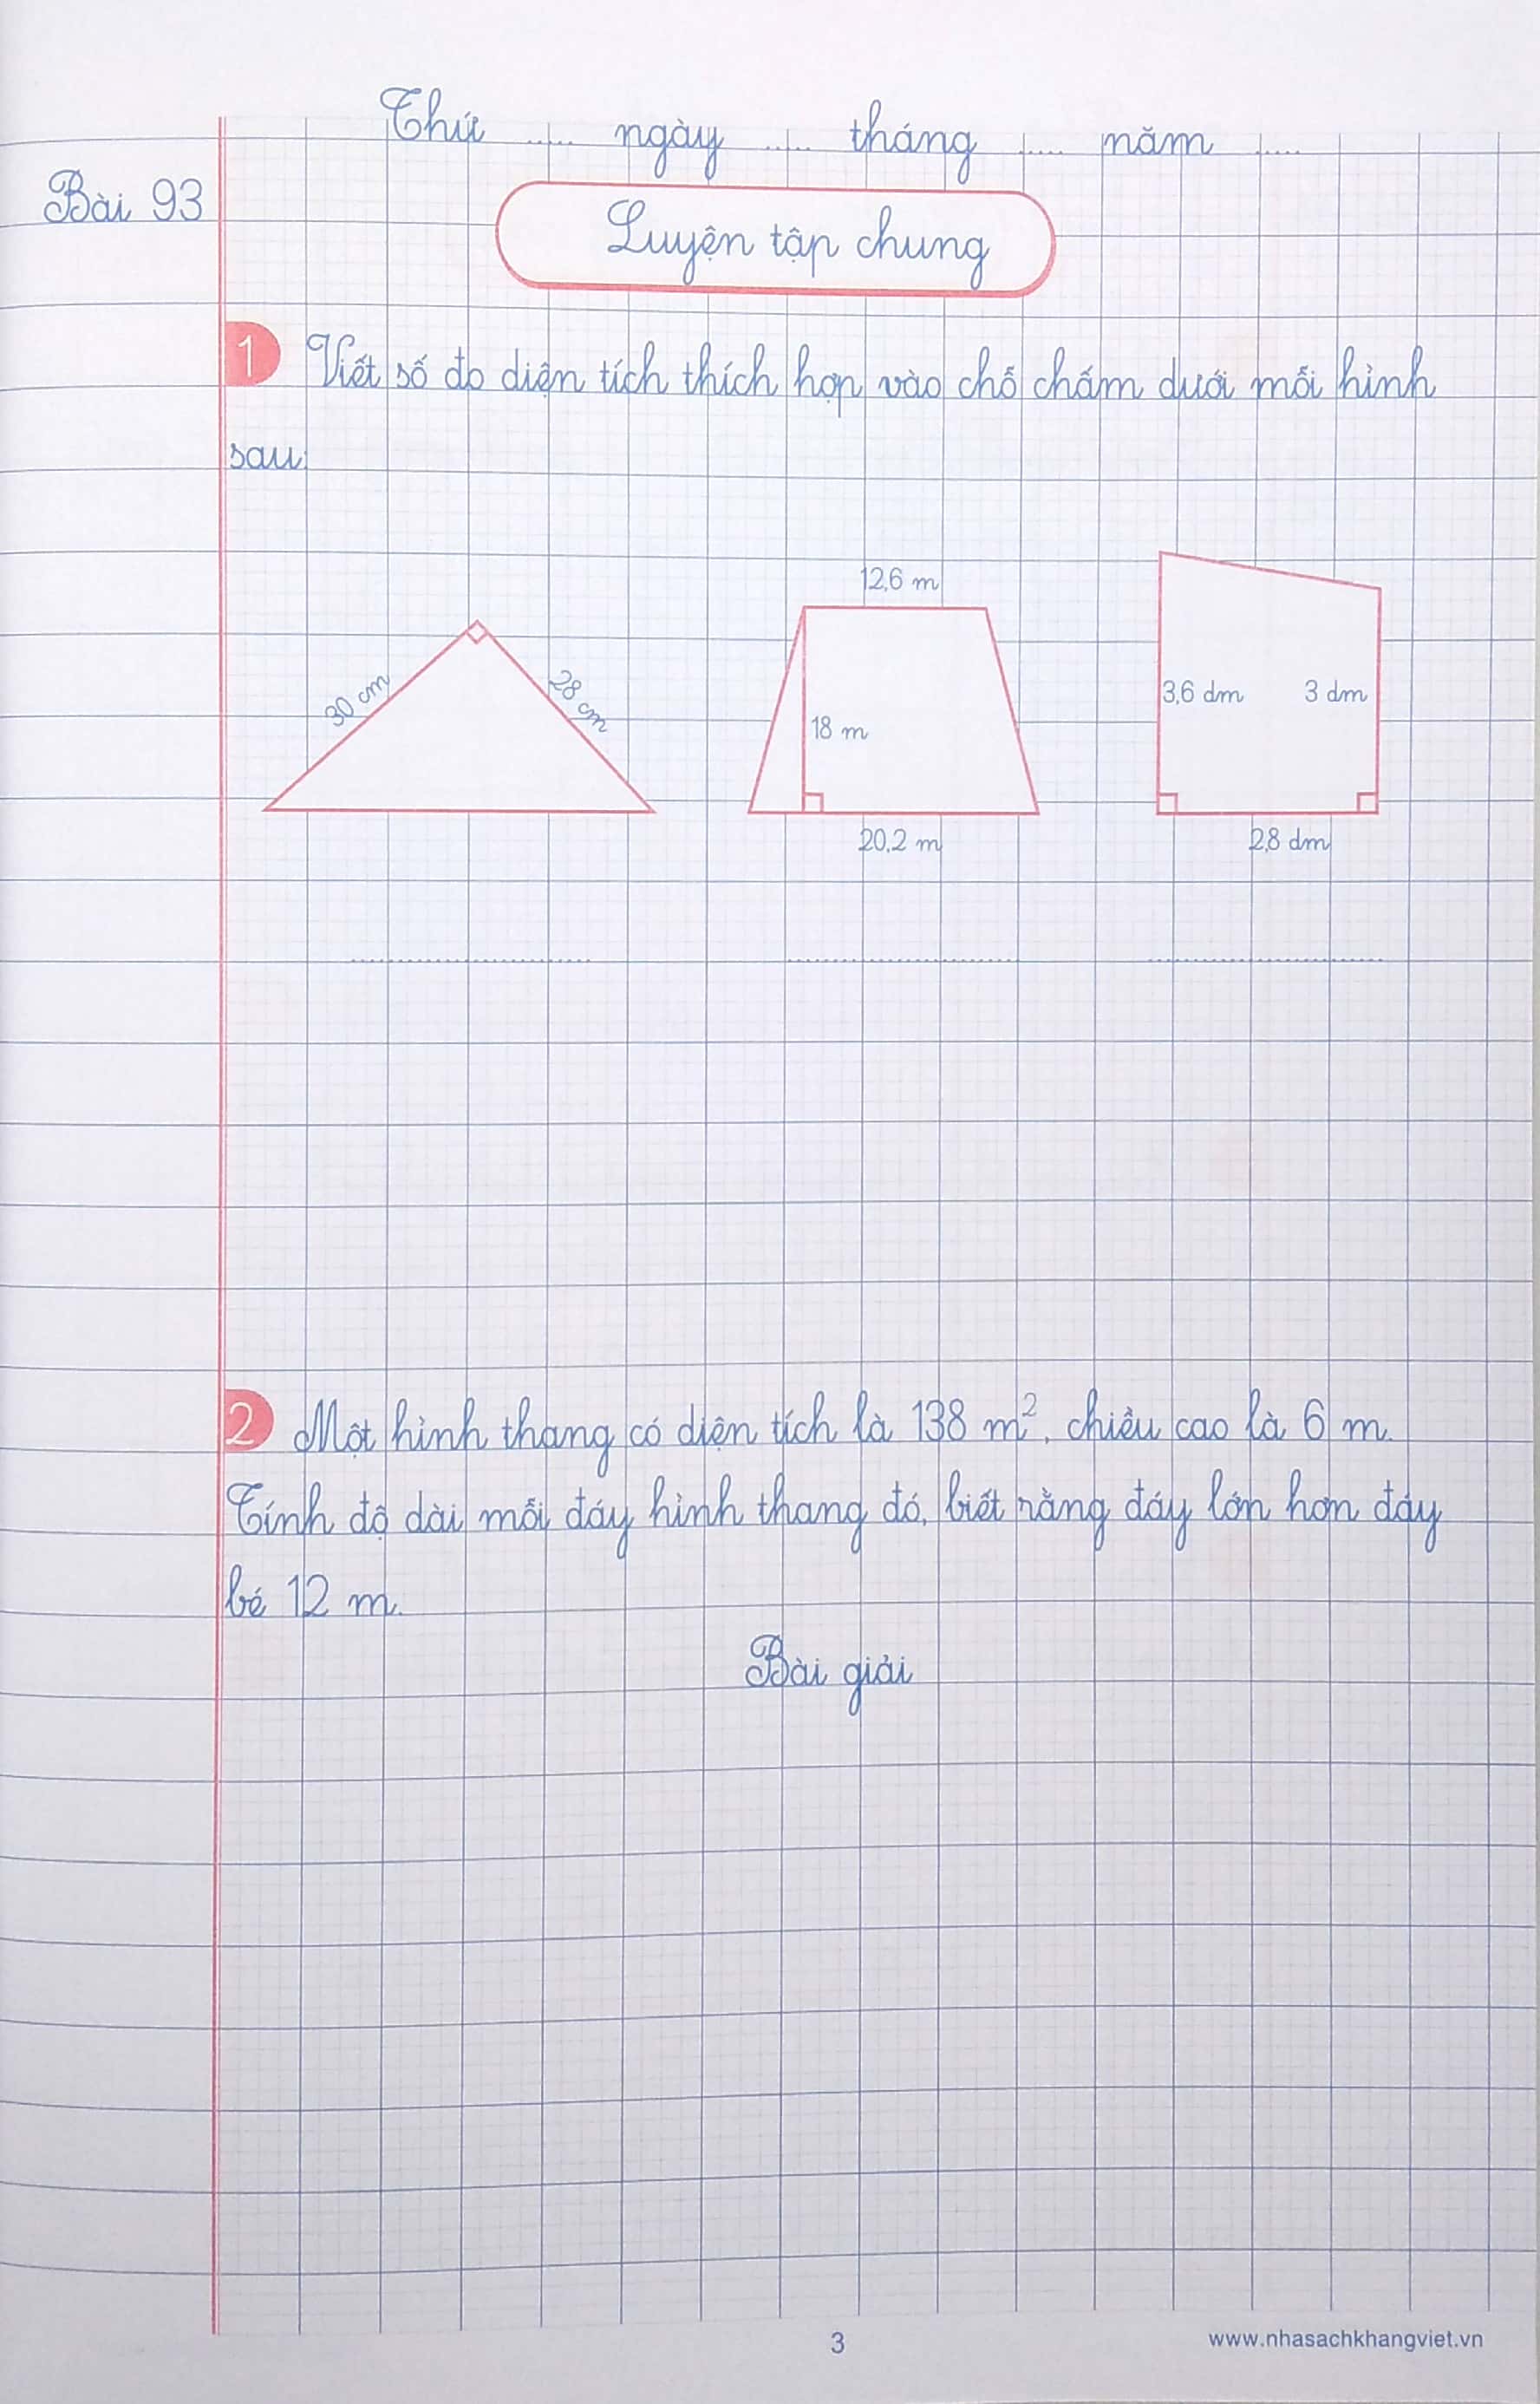 Thứ ..... ngày ..... tháng ..... năm .....
Bài 93
Luyện tập chung
1 Viết số đo diện tích thích hợp vào chỗ chấm dưới mỗi hình
sau:
30 cm
28 cm
12,6 m
18 m
20,2 m
3,6 dm 3 dm
2,8 dm
2 Một hình thang có diện tích là 138 m², chiều cao là 6 m.
Tính độ dài mỗi đáy hình thang đó, biết rằng đáy lớn hơn đáy
bé 12 m.
Bài giải
3
www.nhasachkhangviet.vn